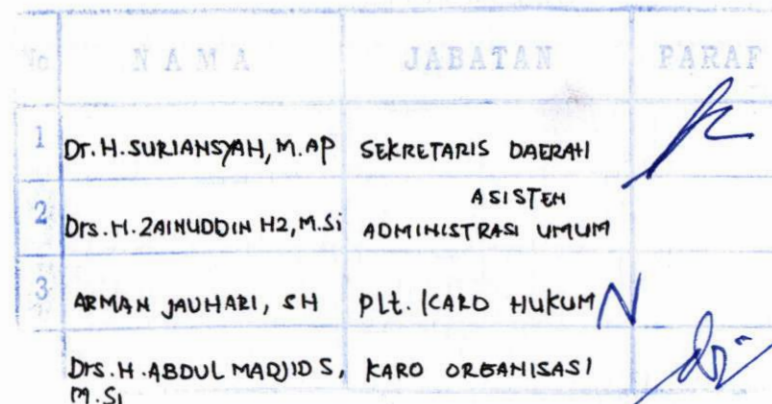 No N A M A JABATAN PARAF
1 Dr. H. SURIANSYAH, M.AP SEKRETARIS DAERAH
ASISTEN
2 Drs. H. ZAINUDDIN HZ, M.Si ADMINISTRASI UMUM
3 ARMAN JAUHARI, SH Plt. KARO HUKUM
Drs. H. ABDUL MADJID S, KARO ORGANISASI
M.Si